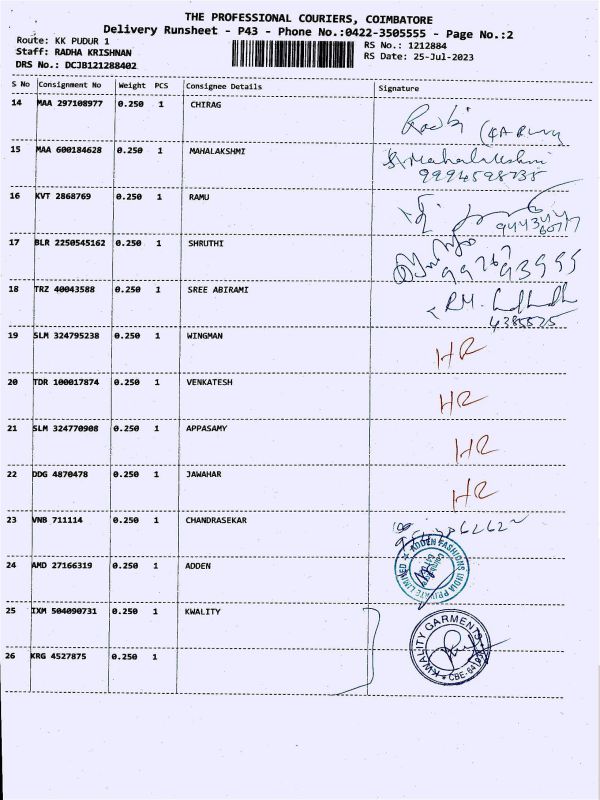 THE PROFESSIONAL COURIERS, COIMBATORE
Delivery Runsheet - P43 - Phone No.:0422-3505555 - Page No.:2
Route: KK PUDUR 1
RS No.: 1212884
Staff: RADHA KRISHNAN
RS Date: 25-Jul-2023
DRS No.: DCJB121288402
S No Consignment No Weight PCS Consignee Details Signature
14 MAA 297108977 0.250 1 CHIRAG
15 MAA 600184628 0.250 1 MAHALAKSHMI Mahalakshmi
9994598735
16 KVT 2868769 0.250 1 RAMU
17 BLR 2250545162 0.250 1 SHRUTHI
18 TRZ 40043588 0.250 1 SREE ABIRAMI RM.
4385525
19 SLM 324795238 0.250 1 WINGMAN HR
20 TDR 100017874 0.250 1 VENKATESH HR
21 SLM 324770908 0.250 1 APPASAMY HR
22 DDG 4870478 0.250 1 JAWAHAR HR
23 VNB 711114 0.250 1 CHANDRASEKAR
24 AMD 27166319 0.250 1 ADDEN ADDEN FASHIONS INDIA PRIVATE LIMITED
25 IXM 504090731 0.250 1 KWALITY KWALITY GARMENTS
26 KRG 4527875 0.250 1